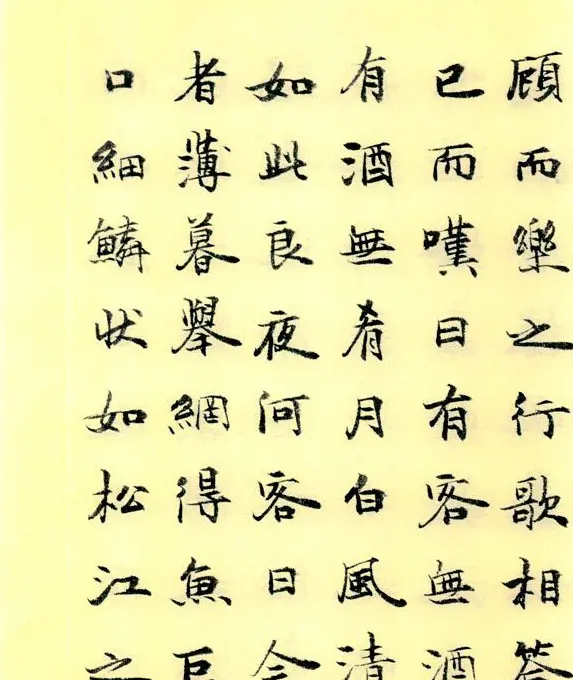 顾而樂之行歌相答
已而嘆曰有客無酒
有酒無肴月白風清
如此良夜何客曰今
者薄暮舉網得魚巨
口細鱗狀如松江之